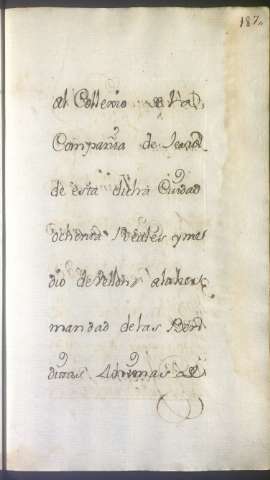 187
al Collexio de la
Compañia de Jesus
de esta dicha Ciudad
ochenta Reales y me
dio de Vellon a la her
mandad de las Ben
ditas Animas de